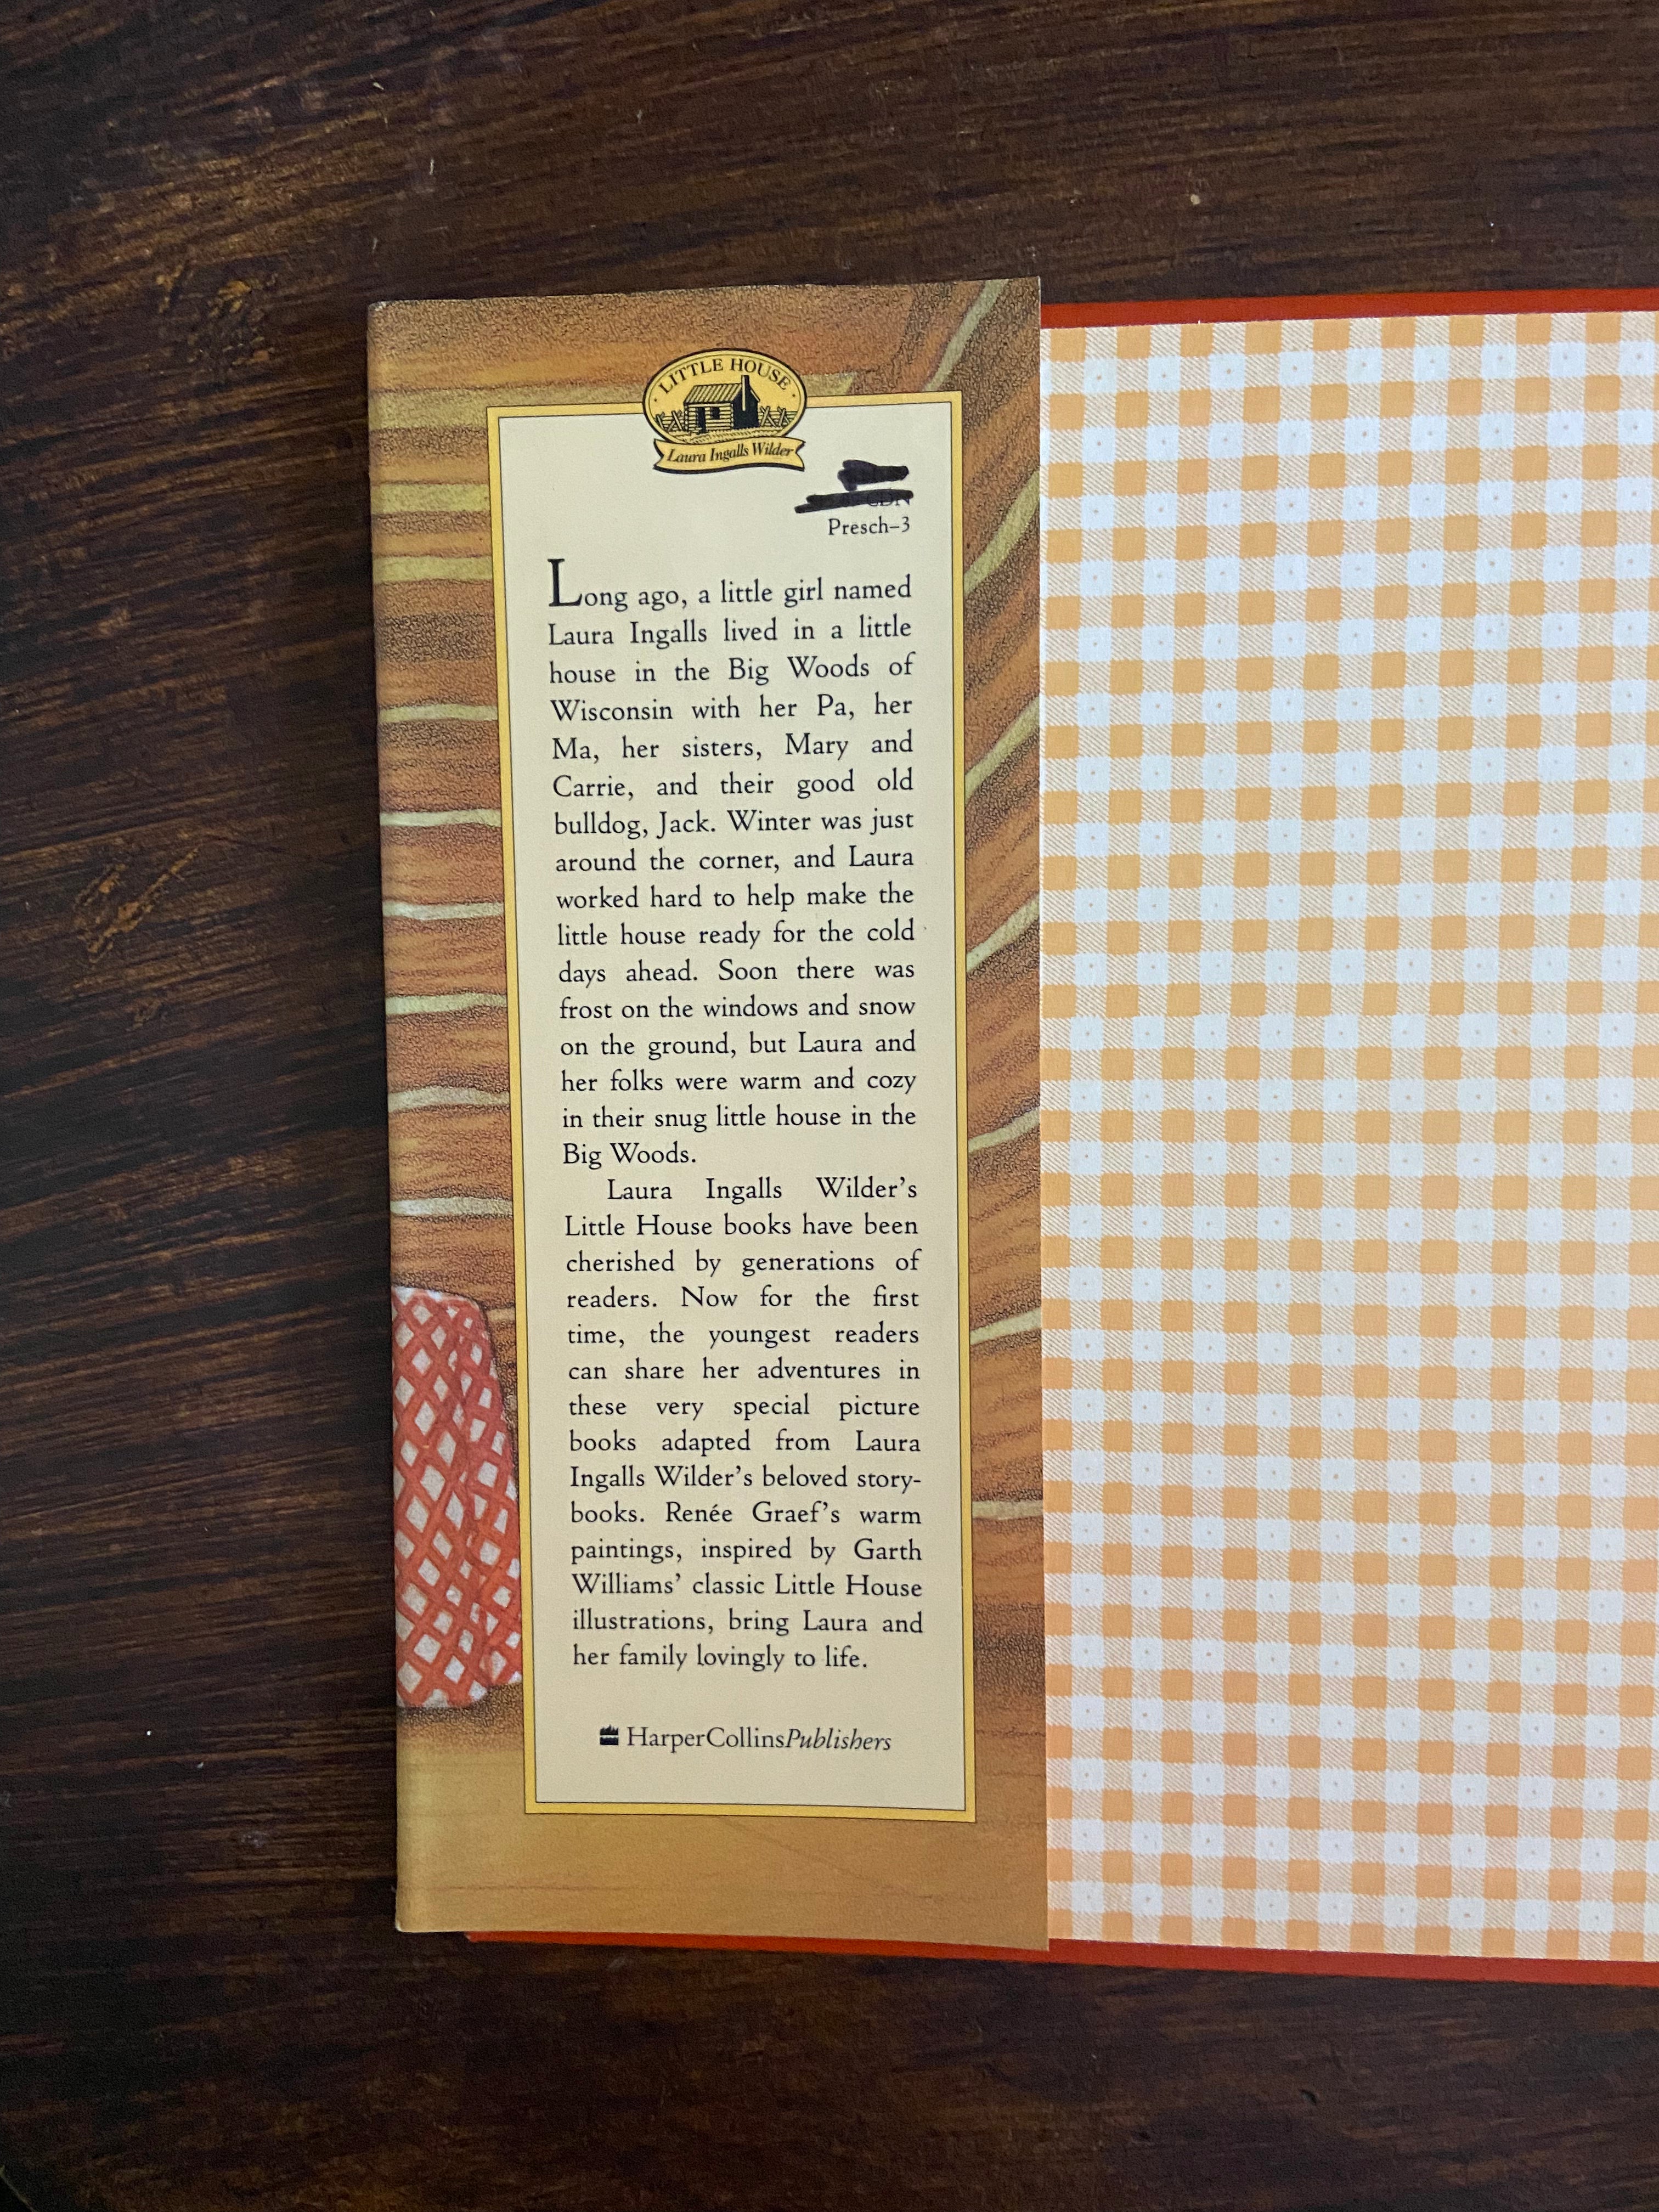 LITTLE HOUSE
Laura Ingalls Wilder
CDN
Presch–3
Long ago, a little girl named
Laura Ingalls lived in a little
house in the Big Woods of
Wisconsin with her Pa, her
Ma, her sisters, Mary and
Carrie, and their good old
bulldog, Jack. Winter was just
around the corner, and Laura
worked hard to help make the
little house ready for the cold
days ahead. Soon there was
frost on the windows and snow
on the ground, but Laura and
her folks were warm and cozy
in their snug little house in the
Big Woods.
Laura Ingalls Wilder’s
Little House books have been
cherished by generations of
readers. Now for the first
time, the youngest readers
can share her adventures in
these very special picture
books adapted from Laura
Ingalls Wilder’s beloved story-
books. Renée Graef’s warm
paintings, inspired by Garth
Williams’ classic Little House
illustrations, bring Laura and
her family lovingly to life.
HarperCollinsPublishers